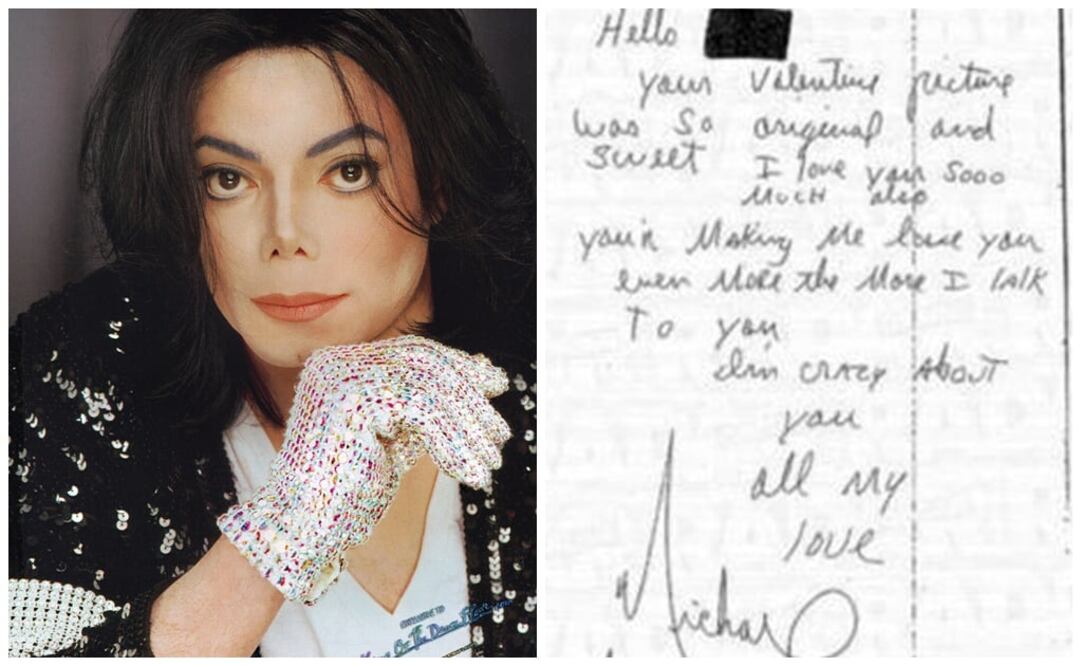 Hello
your Valentine picture
was so original and
sweet I love you sooo
much also
you'r Making Me love you
even More the More I talk
To you
I'm crazy About
you
all my
love
Michael